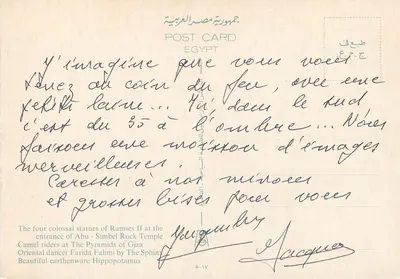 جمهورية مصر العربية
POST CARD
EGYPT
طبع في
ج.م.ع
J'imagine que vous vous
tenez au coin du feu, avec une
petite laine... Ici, dans le sud
c'est du 35 à l'ombre... Nous
faisons une moisson d'images
merveilleuses.
Caresses à nos minous
et grosses bises pour vous
The four colosal statues of Ramses II at the
entrance of Abu - Simbel Rock Temple
Camel riders at The Pyramids of Giza
Oriental dancer Farida Fahmi by The Sphinx
Beautiful earthenware Hippopotamus
Jacques